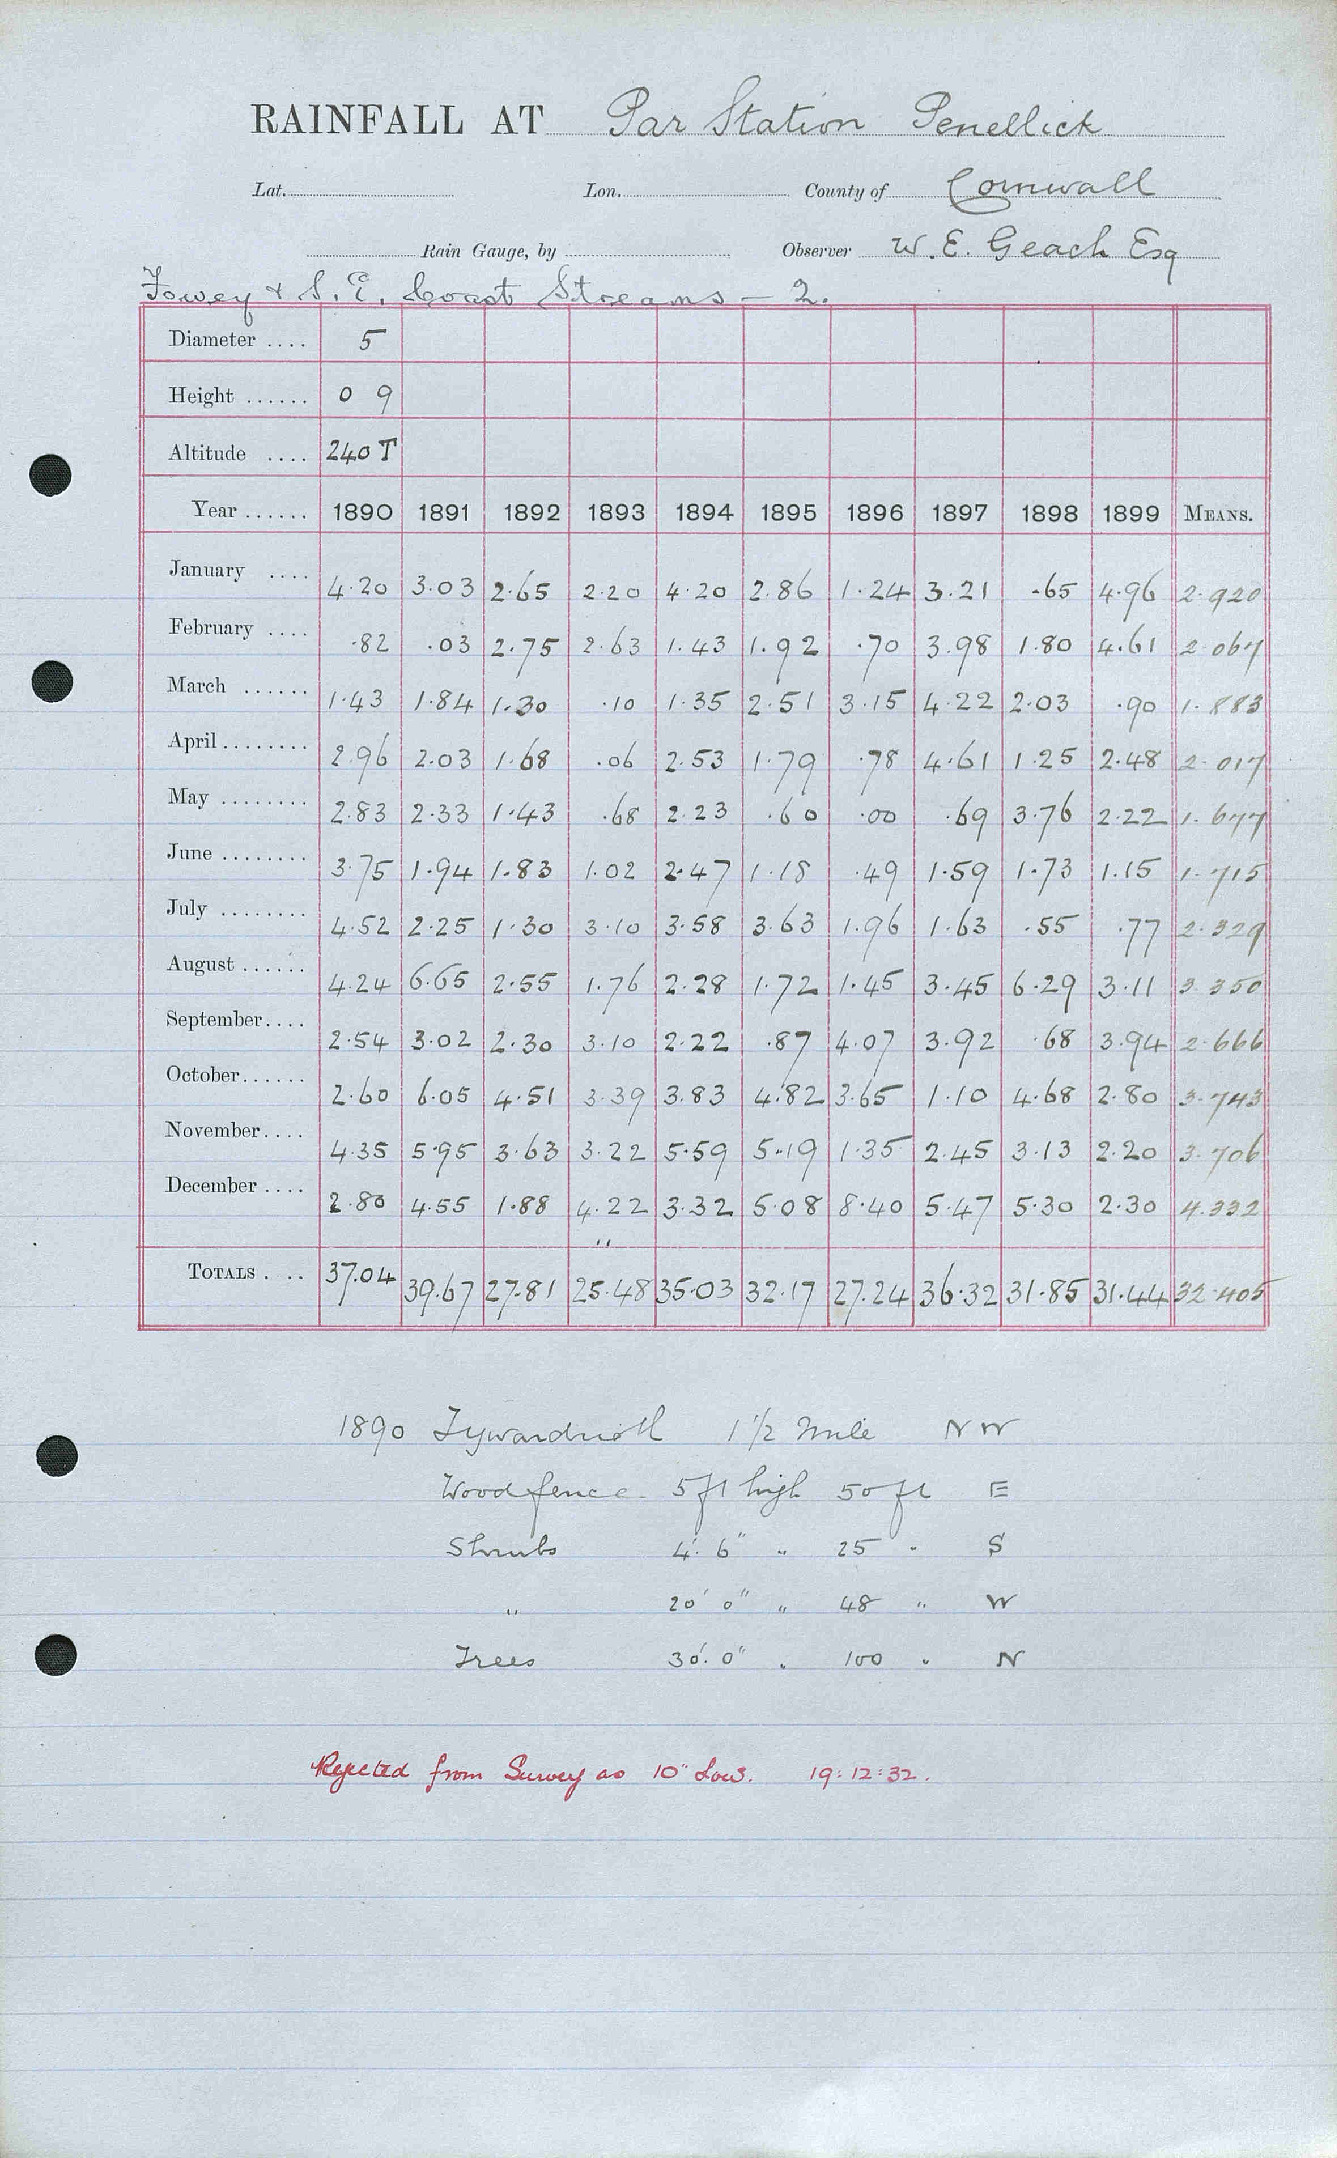 RAINFALL AT Par Station Penellick
Lat. Lon. County of Cornwall
Rain Gauge, by Observer W. E. Geach Esq
Fowey & S. E. Coast Streams — 2.
Diameter .... 5
Height ...... 0 9
Altitude .... 240 T
Year ...... 1890 1891 1892 1893 1894 1895 1896 1897 1898 1899 MEANS.
January .... 4.20 3.03 2.65 2.20 4.20 2.86 1.24 3.21 .65 4.96 2.920
February .... .82 .03 2.75 2.63 1.43 1.92 .70 3.98 1.80 4.61 2.067
March ...... 1.43 1.84 1.30 .10 1.35 2.51 3.15 4.22 2.03 .90 1.883
April ........ 2.96 2.03 1.68 .06 2.53 1.79 .78 4.61 1.25 2.48 2.017
May ........ 2.83 2.33 1.43 .68 2.23 .60 .00 .69 3.76 2.22 1.677
June ........ 3.75 1.94 1.83 1.02 2.47 1.18 .49 1.59 1.73 1.15 1.715
July ........ 4.52 2.25 1.30 3.10 3.58 3.63 1.96 1.63 .55 .77 2.329
August ...... 4.24 6.65 2.55 1.76 2.28 1.72 1.45 3.45 6.29 3.11 3.350
September.... 2.54 3.02 2.30 3.10 2.22 .87 4.07 3.92 .68 3.94 2.666
October...... 2.60 6.05 4.51 3.39 3.83 4.82 3.65 1.10 4.68 2.80 3.743
November.... 4.35 5.95 3.63 3.22 5.59 5.19 1.35 2.45 3.13 2.20 3.706
December .... 2.80 4.55 1.88 4.22 3.32 5.08 8.40 5.47 5.30 2.30 4.332
"
TOTALS . .. 37.04 39.67 27.81 25.48 35.03 32.17 27.24 36.32 31.85 31.44 32.405
1890 Tywardreath 1 1/2 Mile NW
Wood fence 5 ft high 50 ft E
Shrubs 4' 6" " 25 " S
" 20' 0" " 48 " W
Trees 30' 0" " 100 " N
Rejected from Survey as 10" Low. 19:12:32.